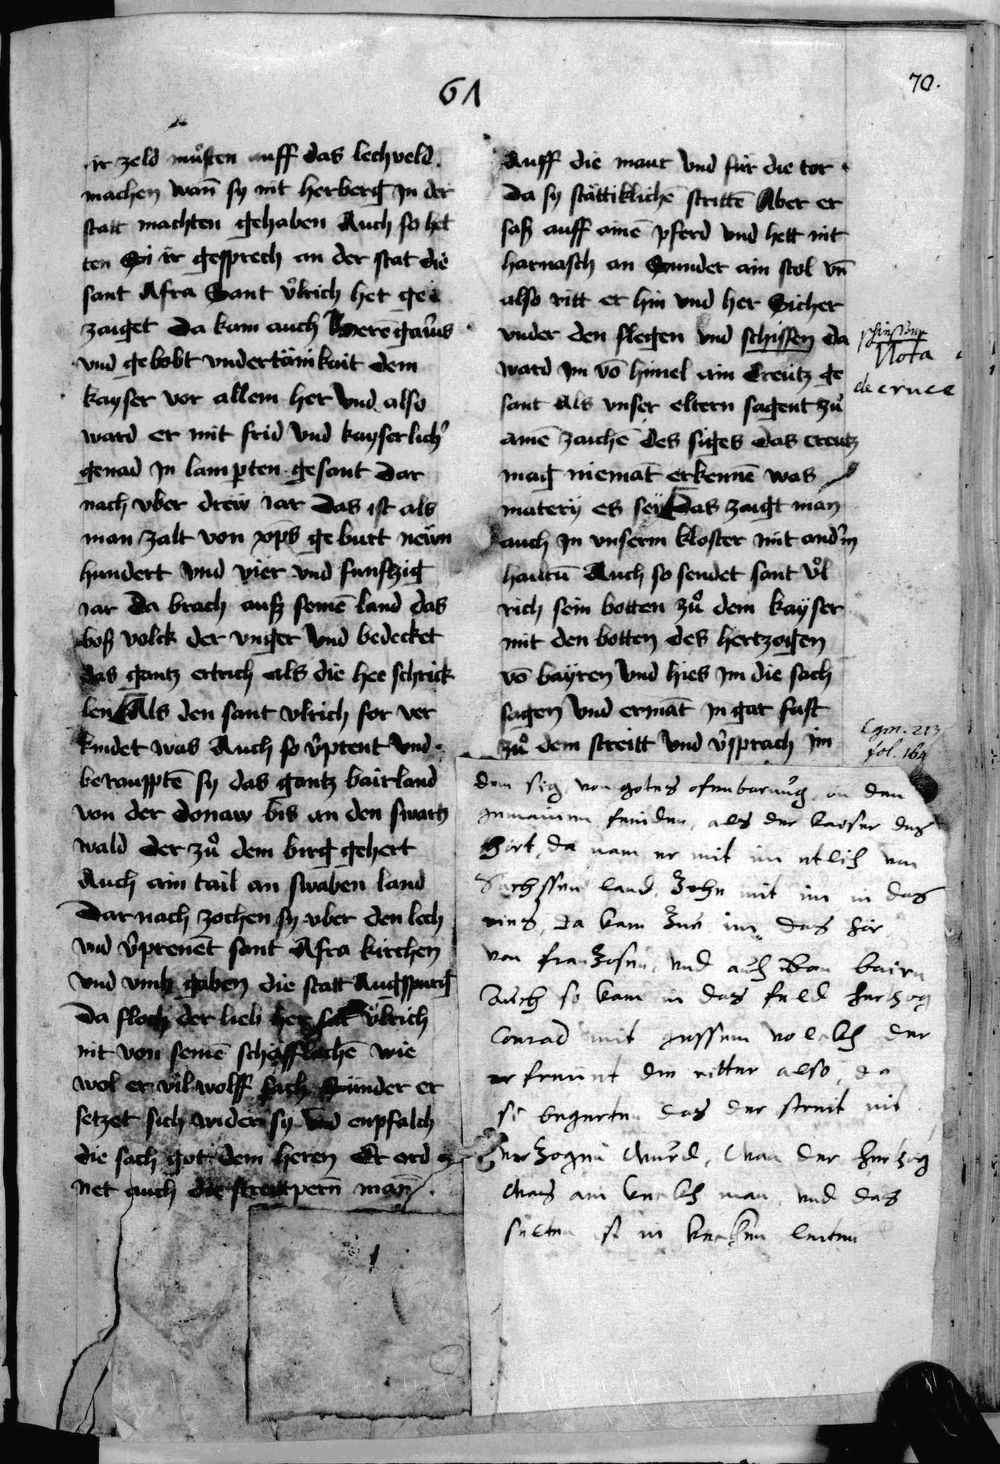 61
70.
ir zeld můsten auff das lechveld.
machen wañ sy nit herberg in der
statt machten gehaben Auch so het
ten Si ir gesprech an der stat die
sant Afra Sant vͦlrich het ge
zaiget Da kam auch
vnd gebobt vndertänikait dem
kayser vor allem her vnd also
ward er mit frid vnd kayserlich
genad in lamparten gesant Dar
nach vber drëw iar Das ist als
man zalt von xp̄s geburt neün
hundert vnd vier vnd funftzig
iar Da brach auß seinē land das
boß volck der vnger vnd bedecket
das gantz ertrich als die hee schrick
len Als den sant vlrich for ver
kindet was Auch so v̉prent vnd
beraupptē sy das gantz bairland
von der donaw bis an den swartz
wald der zuͦ dem birg gehert
Auch ain tail an swaben land
Dar nach zochen sy vber den lech
vnd v̉prenēt sant Afra kirchen
vnd vmb gaben die statt Augspurg
Da floch der lieb her sāt vͦlrich
nit von seinē schäfflachē wie
wol er vil wolff sach Sunder er
setzet sich wider sy vnd enpfalch
die sach got dem heren Er ord
net auch die streitpern man
Auff die maur vnd für die tor
Da sy stättiklichē strittē Aber er
saß auff ainē pferd vnd hett nit
harnasch an Sunder ain stol vñ
also ritt er hin vnd her Sicher
vnder den flegen vnd schissen da
ward im võ himel ain Creütz ge
sant Als vnser eltern sagent zuͦ
ainē zaichē des siges das creütz
mag niemāt erkennē was
matery es sey Das zaigt man
auch in vnserm kloster mit and̉m
hailtū Auch so sendet sant vͦl
rich sein botten zuͦ dem kayser
mit den botten des hertzogen
võ bayren vnd hies im die sach
sagen vnd ermāt in gar fast
zuͦ dem streitt vnd v̉sprach im
Nota
de cruce
Cgm. 213
fol. 164
den sig, von gotes ofenbarung, an den
gemainen feinden, als der kaiser das
hort, da nam er mit im etlich von
Sachssen land, zohe mit im in das
ries, da kam zuͦ im das hör
von franzosen, vnd auch von bairn
Auch so kam in das feld hertzog
Conrad mit grossem volckh der
erfreuet die ritter also, da
si begerten das der streit nit
verzogen wurd, wan der hertzog
was ain kuͤckh man vnd das
selten si in